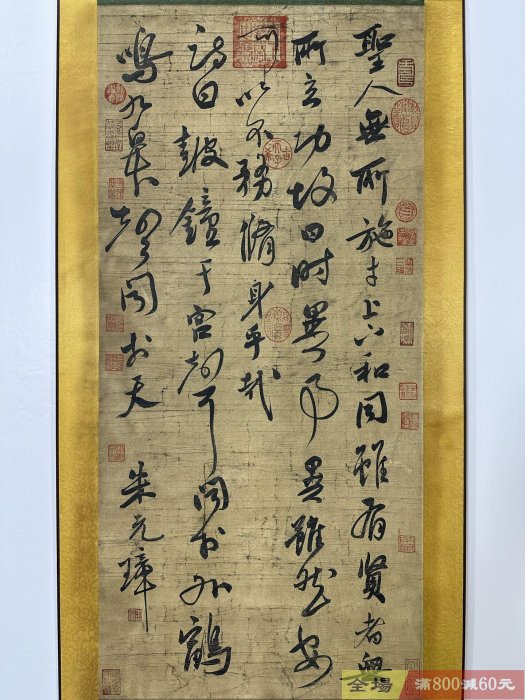 聖人無所施才上下和同雖有賢者無
所立功故曰時異事異雖然安
可以不務脩身乎哉
詩曰鼓鐘于宮聲聞於外鶴
鳴九皋聲聞於天
朱元璋
全場 滿800減60元